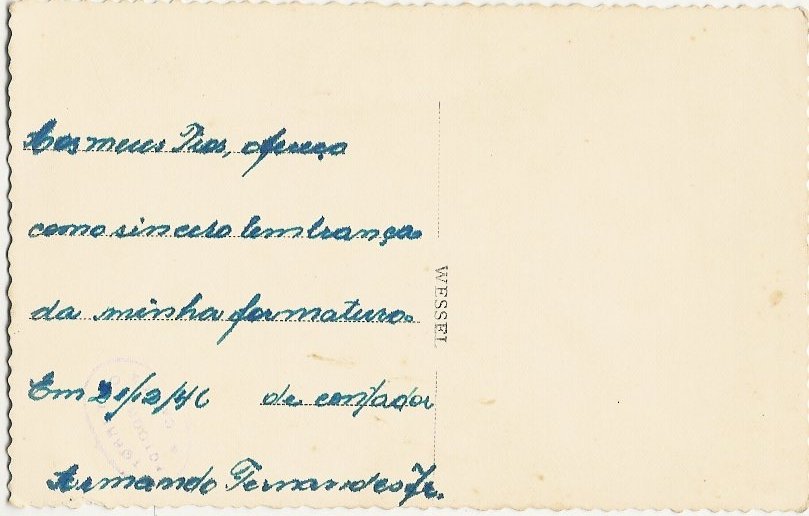 Aos meus Tios, ofereço
como sincera lembrança
da minha formatura.
Em 21/12/46 de contador
Armando Fernandes Jr.
WESSEL